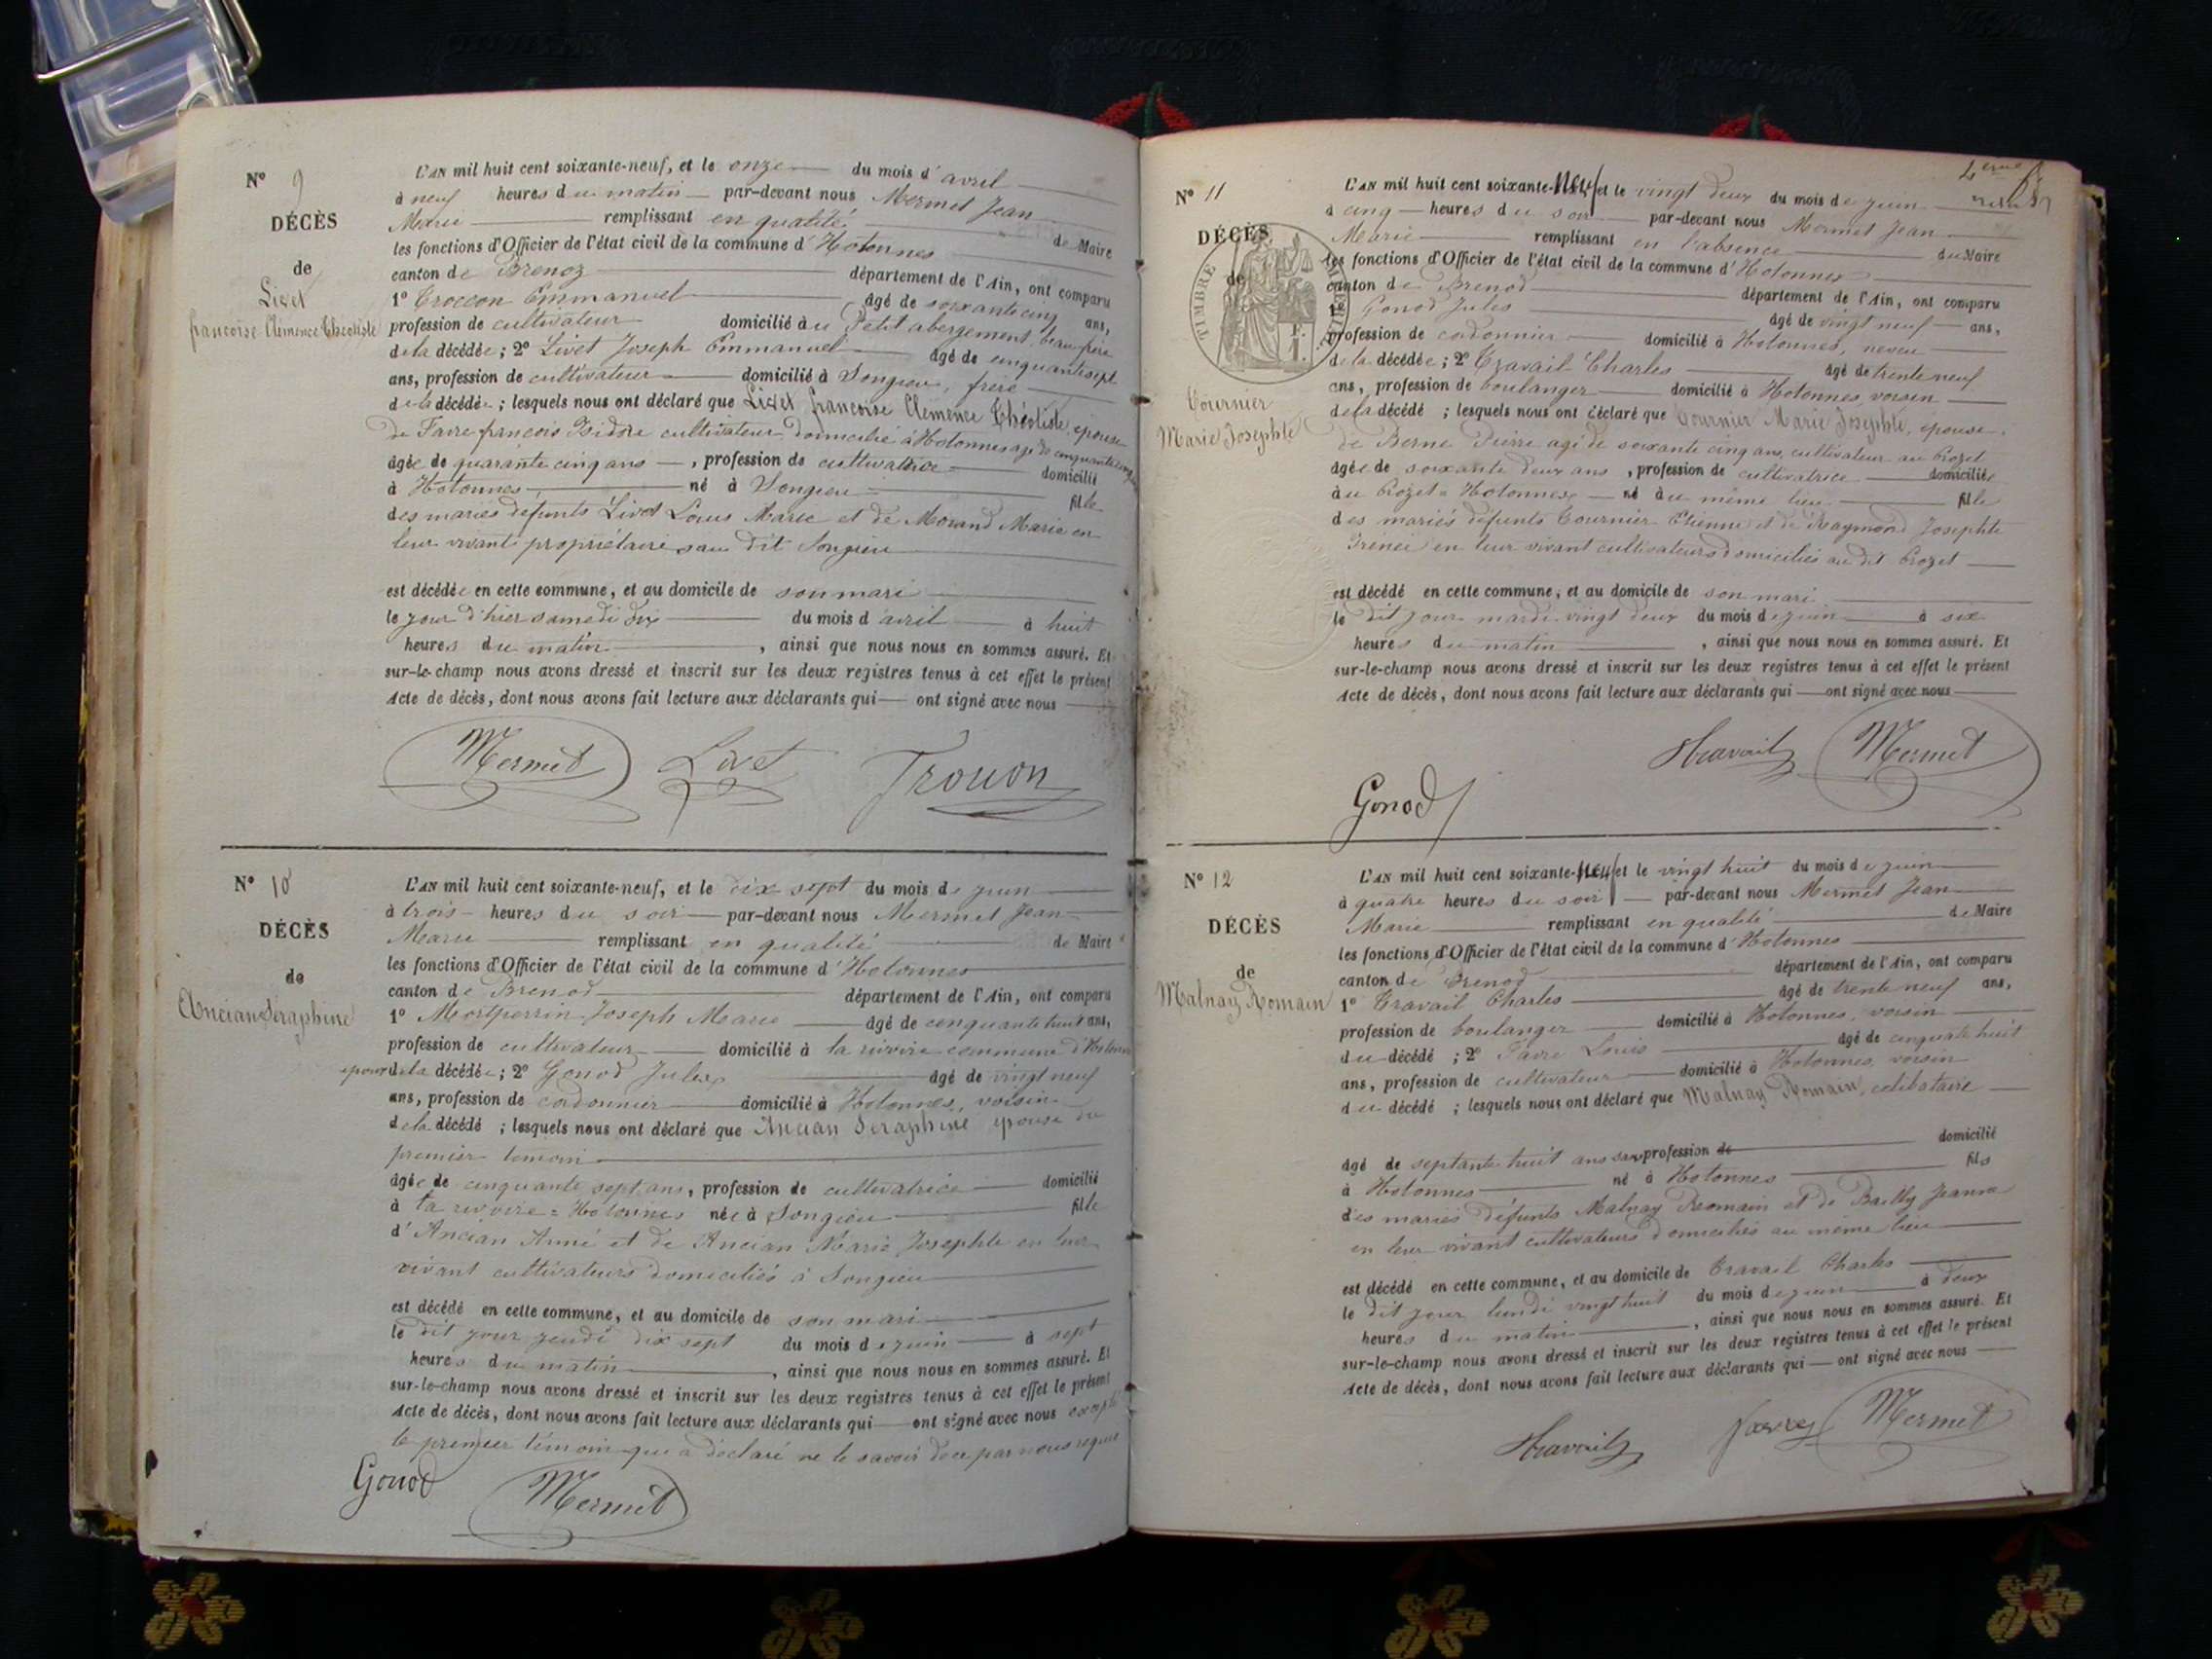 N° 9
DÉCÈS
de
Livet
françoise Clémence Théotiste
L'AN mil huit cent soixante-neuf, et le onze du mois d'avril
à neuf heures du matin par-devant nous Mermet Jean
Marie remplissant en qualité de Maire
les fonctions d'Officier de l'état civil de la commune d'Hotonnes
canton de Brenoz département de l'Ain, ont comparu
1° Troccon Emmanuel âgé de soixante cinq ans,
profession de cultivateur domicilié au Petit abergement, beau frère
de la décédée; 2° Livet Joseph Emmanuel âgé de cinquante sept
ans, profession de cultivateur domicilié à Songieu, frère
de la décédée; lesquels nous ont déclaré que Livet françoise Clémence Théotiste, épouse
de Favre françois Isidore cultivateur domicilié à Hotonnes agé de cinquante cinq
âgée de quarante cinq ans, profession de cultivatrice domicilié
à Hotonnes, né à Songieu fille
des mariés défunts Livet Louis Marie et de Morand Marie en
leur vivant propriétaires au dit Songieu
est décédée en cette commune, et au domicile de son mari
le jour d'hier samedi dix du mois d'avril à huit
heures du matin, ainsi que nous nous en sommes assuré. Et
sur-le-champ nous avons dressé et inscrit sur les deux registres tenus à cet effet le présent
Acte de décès, dont nous avons fait lecture aux déclarants qui ont signé avec nous
Mermet Livet Trocon
N° 10
DÉCÈS
de
Ancian Séraphine
L'AN mil huit cent soixante-neuf, et le dix sept du mois de juin
à trois heures du soir par-devant nous Mermet Jean
Marie remplissant en qualité de Maire
les fonctions d'Officier de l'état civil de la commune d'Hotonnes
canton de Brenod département de l'Ain, ont comparu
1° Montperrin Joseph Marie âgé de cinquante huit ans,
profession de cultivateur domicilié à la rivoire commune d'Hotonnes
époux de la décédée; 2° Gonod Jules âgé de vingt neuf
ans, profession de cordonnier domicilié à Hotonnes, voisin
de la décédé; lesquels nous ont déclaré que Ancian Séraphine épouse du
premier témoin
âgée de cinquante sept ans, profession de cultivatrice domicilié
à la rivoire = Hotonnes née à Songieu fille
d'Ancian Aimé et de Ancian Marie Josephte en leur
vivant cultivateurs domiciliés à Songieu
est décédé en cette commune, et au domicile de son mari
le dit jour jeudi dix sept du mois de juin à sept
heures du matin, ainsi que nous nous en sommes assuré. Et
sur-le-champ nous avons dressé et inscrit sur les deux registres tenus à cet effet le présent
Acte de décès, dont nous avons fait lecture aux déclarants qui ont signé avec nous excepté
le premier témoin qui a déclaré ne le savoir de ce par nous requis
Gonod Mermet
N° 11
DÉCÈS
de
TIMBRE IMPÉRIAL
Tournier
Marie Josephte
L'AN mil huit cent soixante-neuf et le vingt deux du mois de juin
à cinq heures du soir par-devant nous Mermet Jean
Marie remplissant en l'absence du Maire
les fonctions d'Officier de l'état civil de la commune d'Hotonnes
canton de Brenod département de l'Ain, ont comparu
1° Gonod Jules âgé de vingt neuf ans,
profession de cordonnier domicilié à Hotonnes, neveu
de la décédée; 2° Travail Charles âgé de trente neuf
ans, profession de boulanger domicilié à Hotonnes, voisin
de la décédé; lesquels nous ont déclaré que Tournier Marie Josephte, épouse
de Berne Pierre agé de soixante cinq ans, cultivateur au Crozet
âgée de soixante deux ans, profession de cultivatrice domiciliée
au Crozet = Hotonnes né au même lieu fille
des mariés défunts Tournier Etienne et de Raymond Josephte
Irénée en leur vivant cultivateurs domiciliés au dit Crozet
est décédé en cette commune, et au domicile de son mari
le dit jour mardi vingt deux du mois de juin à six
heures du matin, ainsi que nous nous en sommes assuré. Et
sur-le-champ nous avons dressé et inscrit sur les deux registres tenus à cet effet le présent
Acte de décès, dont nous avons fait lecture aux déclarants qui ont signé avec nous
Gonod Travail Mermet
N° 12
DÉCÈS
de
Malnay Romain
L'AN mil huit cent soixante-neuf et le vingt huit du mois de juin
à quatre heures du soir par-devant nous Mermet Jean
Marie remplissant en qualité de Maire
les fonctions d'Officier de l'état civil de la commune d'Hotonnes
canton de Brenod département de l'Ain, ont comparu
1° Travail Charles âgé de trente neuf ans,
profession de boulanger domicilié à Hotonnes, voisin
du décédé; 2° Favre Louis âgé de cinquante huit
ans, profession de cultivateur domicilié à Hotonnes, voisin
du décédé; lesquels nous ont déclaré que Malnay Romain, célibataire
âgé de septante huit ans sans profession de domicilié
à Hotonnes né à Hotonnes fils
des mariés défunts Malnay Romain et de Bailly Jeanne
en leur vivant cultivateurs domiciliés au même lieu
est décédé en cette commune, et au domicile de Travail Charles
le dit jour lundi vingt huit du mois de juin à deux
heures du matin, ainsi que nous nous en sommes assuré. Et
sur-le-champ nous avons dressé et inscrit sur les deux registres tenus à cet effet le présent
Acte de décès, dont nous avons fait lecture aux déclarants qui ont signé avec nous
Travail favre Mermet